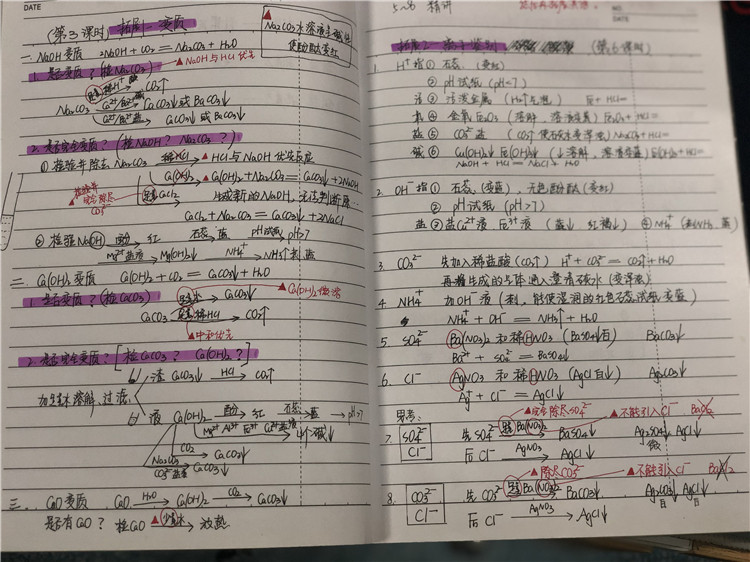 DATE
(第3课时) 拓展1－变质
▲ Na₂CO₃水溶液显碱性
使酚酞变红
一. NaOH变质 2NaOH + CO₂ = Na₂CO₃ + H₂O
1. 是否变质？(检Na₂CO₃) ▲NaOH与HCl优先
Na₂CO₃ 足量稀H⁺酸 → CO₂↑
Ca²⁺/Ba²⁺碱 → CaCO₃↓或BaCO₃↓
Ca²⁺/Ba²⁺盐 → CaCO₃↓或BaCO₃↓
2. 是否完全变质？(检NaOH？ Na₂CO₃？)
① 检验并除去Na₂CO₃ 稀HCl → ▲HCl与NaOH优先反应
Ca(OH)₂ → ▲Ca(OH)₂ + Na₂CO₃ = CaCO₃↓ + 2NaOH
▲检验并完全除尽CO₃²⁻ 足量CaCl₂ 生成新的NaOH, 无法判断原…
CaCl₂ + Na₂CO₃ = CaCO₃↓ + 2NaCl
② 检验NaOH 酚酞 → 红 石蕊 → 蓝 pH试纸 → pH>7
Mg²⁺盐液 → Mg(OH)₂↓ NH₄⁺ → NH₃↑ 蓝
二. Ca(OH)₂变质 Ca(OH)₂ + CO₂ = CaCO₃↓ + H₂O
1. 是否变质？(检CaCO₃) → CaCO₃↓ ▲Ca(OH)₂微溶
CaCO₃ 足量稀HCl → CO₂↑
▲中和优先
2. 是否完全变质？[检CaCO₃？ Ca(OH)₂？]
渣 CaCO₃↓ HCl → CO₂↑
加足水溶解, 过滤,
液 Ca(OH)₂ 酚酞 → 红 石蕊 → 蓝 → pH>7
Mg²⁺ Al³⁺ Fe³⁺ Cu²⁺盐液 → 4个碱↓
CO₂ → CaCO₃↓
Na₂CO₃ CO₃²⁻盐液 → CaCO₃↓
三. CaO变质 CaO H₂O → Ca(OH)₂ CO₂ → CaCO₃↓
是否有CaO？ 检CaO ▲少量水 → 放热
5~6 精讲
NO.
DATE
拓展2－离子鉴别 (第6课时)
1 H⁺ 指① 石蕊. (变红)
② pH试纸 (pH<7)
活③ 活泼金属 (H₂↑气泡) Fe + HCl =
氧④ 金氧Fe₂O₃ (溶解, 溶液变黄) Fe₂O₃ + HCl =
盐⑤ CO₃²⁻盐 (CO₂↑使石灰水变浑浊) Na₂CO₃ + HCl =
碱⑥ Cu(OH)₂↓ Fe(OH)₃↓ (↓溶解, 溶液变蓝) Cu(OH)₂ + HCl =
NaOH + HCl = NaCl + H₂O
2. OH⁻ 指① 石蕊. (变蓝), 无色酚酞 (变红)
② pH试纸 (pH>7)
盐③ 盐Cu²⁺液 Fe³⁺液 (蓝↓ 红褐↓) ④ NH₄⁺ (NH₃. 蓝)
3. CO₃²⁻ 先加入稀盐酸 (CO₂↑) H⁺ + CO₃²⁻ = CO₂↑ + H₂O
再将生成的气体通入澄清石灰水 (变浑浊)
4 NH₄⁺ 加OH⁻液 (刺, 能使湿润的红色石蕊试纸变蓝)
NH₄⁺ + OH⁻ = NH₃↑ + H₂O
5. SO₄²⁻ Ba(NO₃)₂ 和稀HNO₃ (BaSO₄↓白) BaCO₃↓
Ba²⁺ + SO₄²⁻ = BaSO₄↓
6. Cl⁻ AgNO₃ 和稀HNO₃ (AgCl白↓) Ag₂CO₃↓
Ag⁺ + Cl⁻ = AgCl↓
思考: ▲完全除尽SO₄²⁻ ▲不能引入Cl⁻ BaCl₂
7. SO₄²⁻ 先SO₄²⁻ 足量Ba(NO₃)₂ → BaSO₄↓ Ag₂SO₄↓ AgCl↓
Cl⁻ 后Cl⁻ AgNO₃ → AgCl↓ 微
▲除尽CO₃²⁻ ▲不能引入Cl⁻ BaCl₂
8. CO₃²⁻ 先CO₃²⁻ 足量Ba(NO₃)₂ → BaCO₃↓ Ag₂CO₃↓ AgCl↓
Cl⁻ 后Cl⁻ AgNO₃ → AgCl↓ 白 白